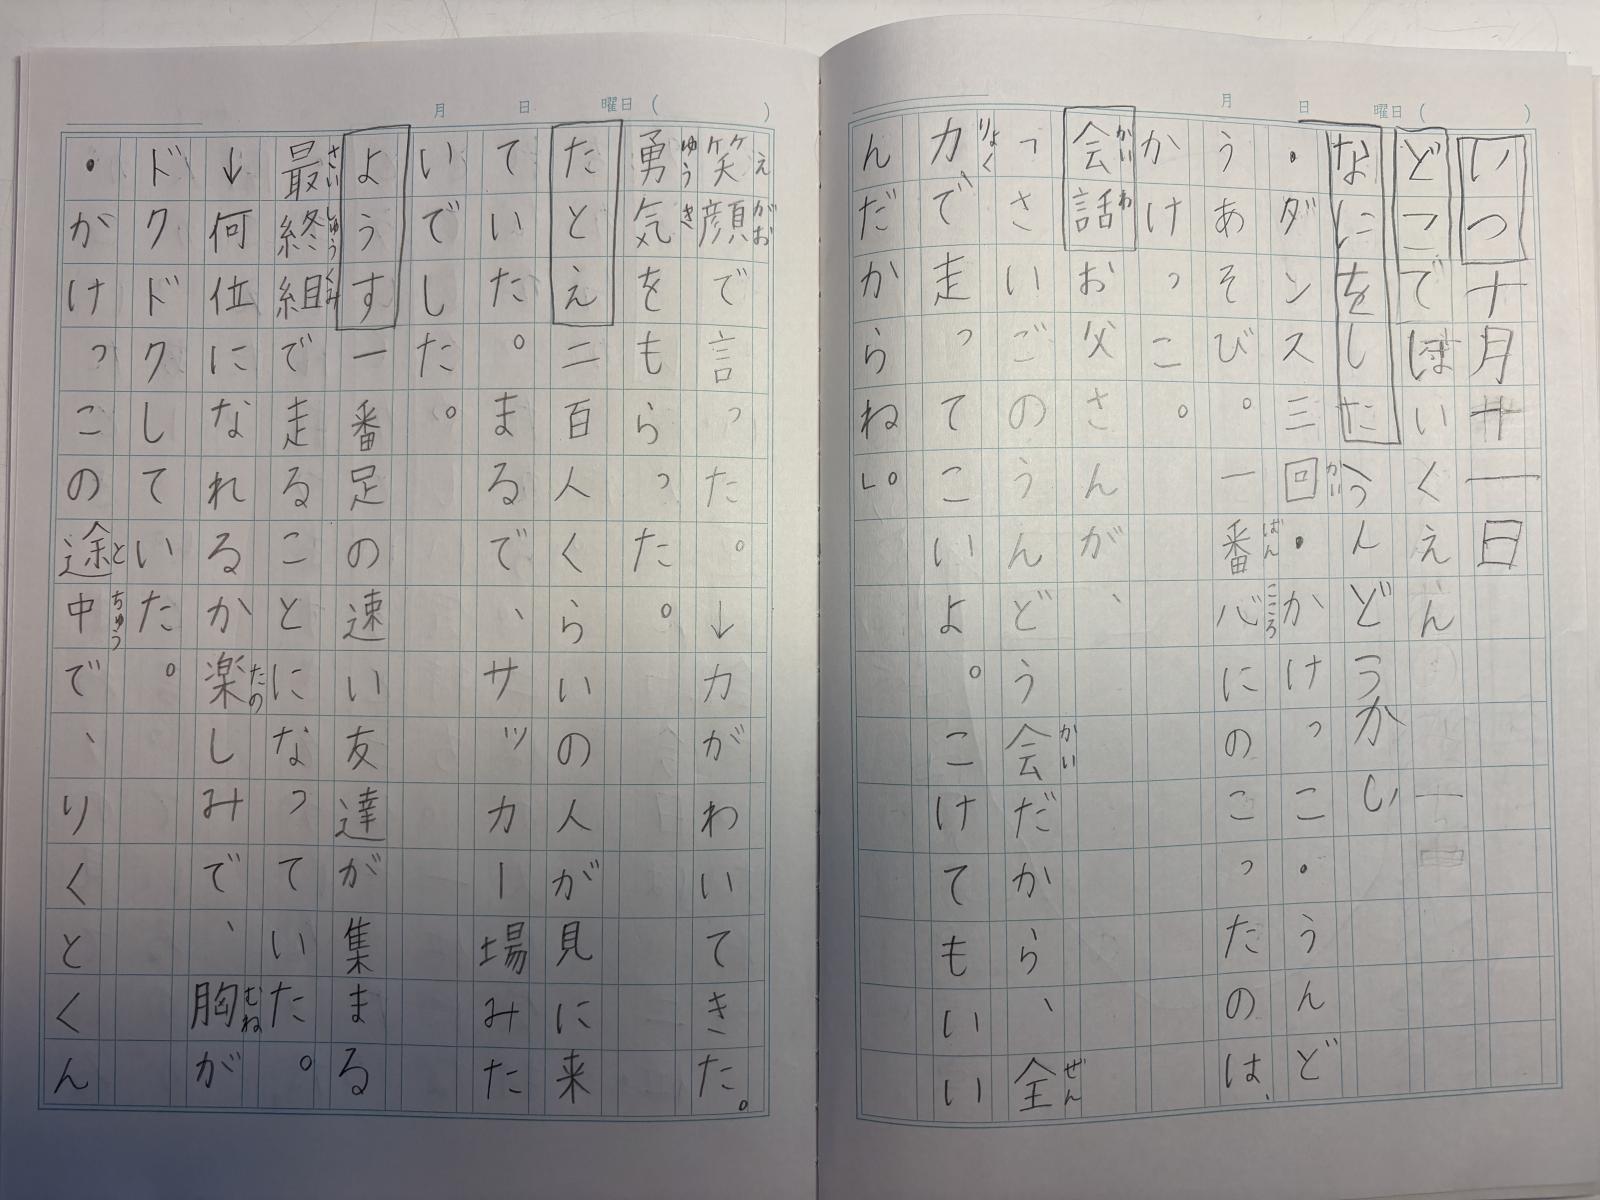 月 日 曜日 ( )
いつ十月廿一日
どこでほいくえん
なにをしたうんどうかい
かい
・ダンス三回・かけっこ・うんど
ばん こころ
うあそび。一番心にのこったのは、
かけっこ。
かい わ
会話お父さんが、
かい ぜん
「さいごのうんどう会だから、全
りょく
力で走ってこいよ。こけてもいい
んだからね」。
月 日 曜日 ( )
え がお
笑顔で言った。↓力がわいてきた。
ゆう き
勇気をもらった。
たとえ二百人くらいの人が見に来
ていた。まるで、サッカー場みた
いでした。
ようす一番足の速い友達が集まる
さい しゅう くみ
最終組で走ることになっていた。
たの むね
↓何位になれるか楽しみで、胸が
ドクドクしていた。
と ちゅう
・かけっこの途中で、りくとくん